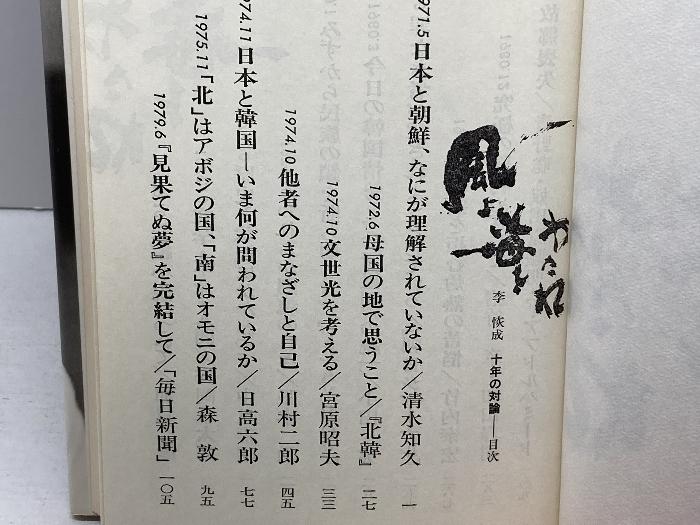 風よ海を
わたれ
李 恢成 十年の対論──目次
1971.5 日本と朝鮮、なにが理解されていないか/清水知久 一
1972.6 母国の地で思うこと/『北韓』 二七
1974.10 文世光を考える/宮原昭夫 三三
1974.10 他者へのまなざしと自己/川村二郎 四五
1974.11 日本と韓国─いま何が問われているか/日高六郎 七七
1975.11 「北」はアボジの国、「南」はオモニの国/森 敦 九五
1979.6 『見果てぬ夢』を完結して/「毎日新聞」 一〇五